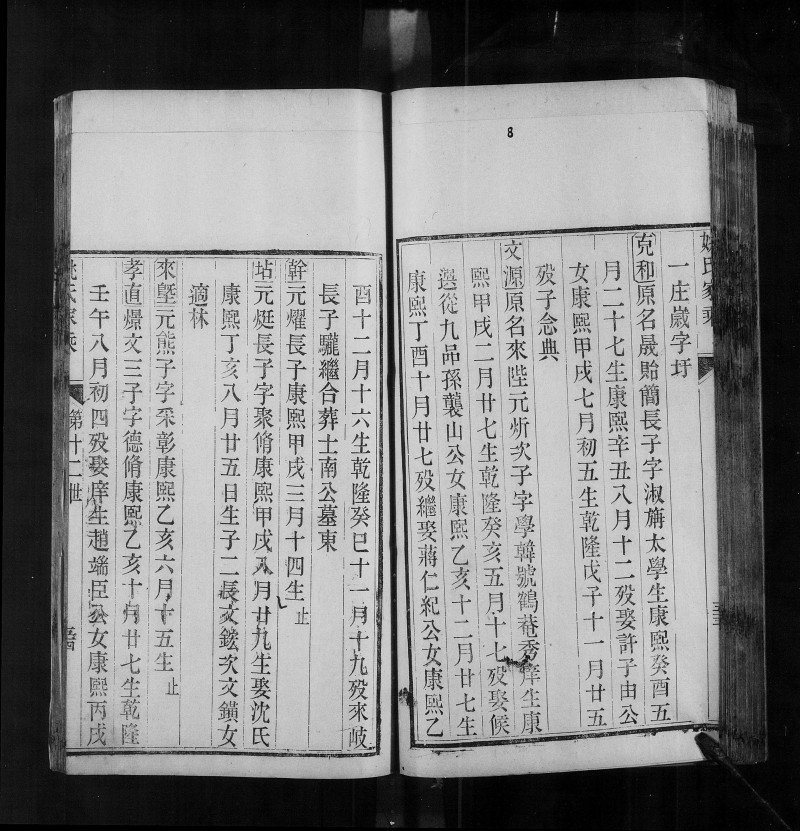 8
姚氏家乘
一庄嵗字圩
克和原名晟貽簡長子字淑旃太學生康熙癸酉五
月二十七生康熙辛丑八月十二歿娶許子由公
女康熙甲戌七月初五生乾隆戊子十一月廿五
歿子念典
文源原名來陞元炘次子字學韓號鶴菴秀庠生康
熙甲戌二月廿七生乾隆癸亥五月十七歿娶候
選從九品孫襲山公女康熙乙亥十二月廿七生
康熙丁酉十月廿七歿繼娶蔣仁紀公女康熙乙
酉十二月十六生乾隆癸巳十一月十九歿來岐
長子驪繼合葬士南公墓東
幹元燿長子康熙甲戌三月十四生止
坫元烶長子字聚脩康熙甲戌八月廿九生娶沈氏
康熙丁亥八月廿五日生子二長文鋐次文鐄女
適林
來墍元熊子字采彰康熙乙亥六月十五生止
孝直燝文三子字德脩康熙乙亥十月廿七生乾隆
壬午八月初四歿娶庠生趙端臣公女康熙丙戌
姚氏家乘 第十二世